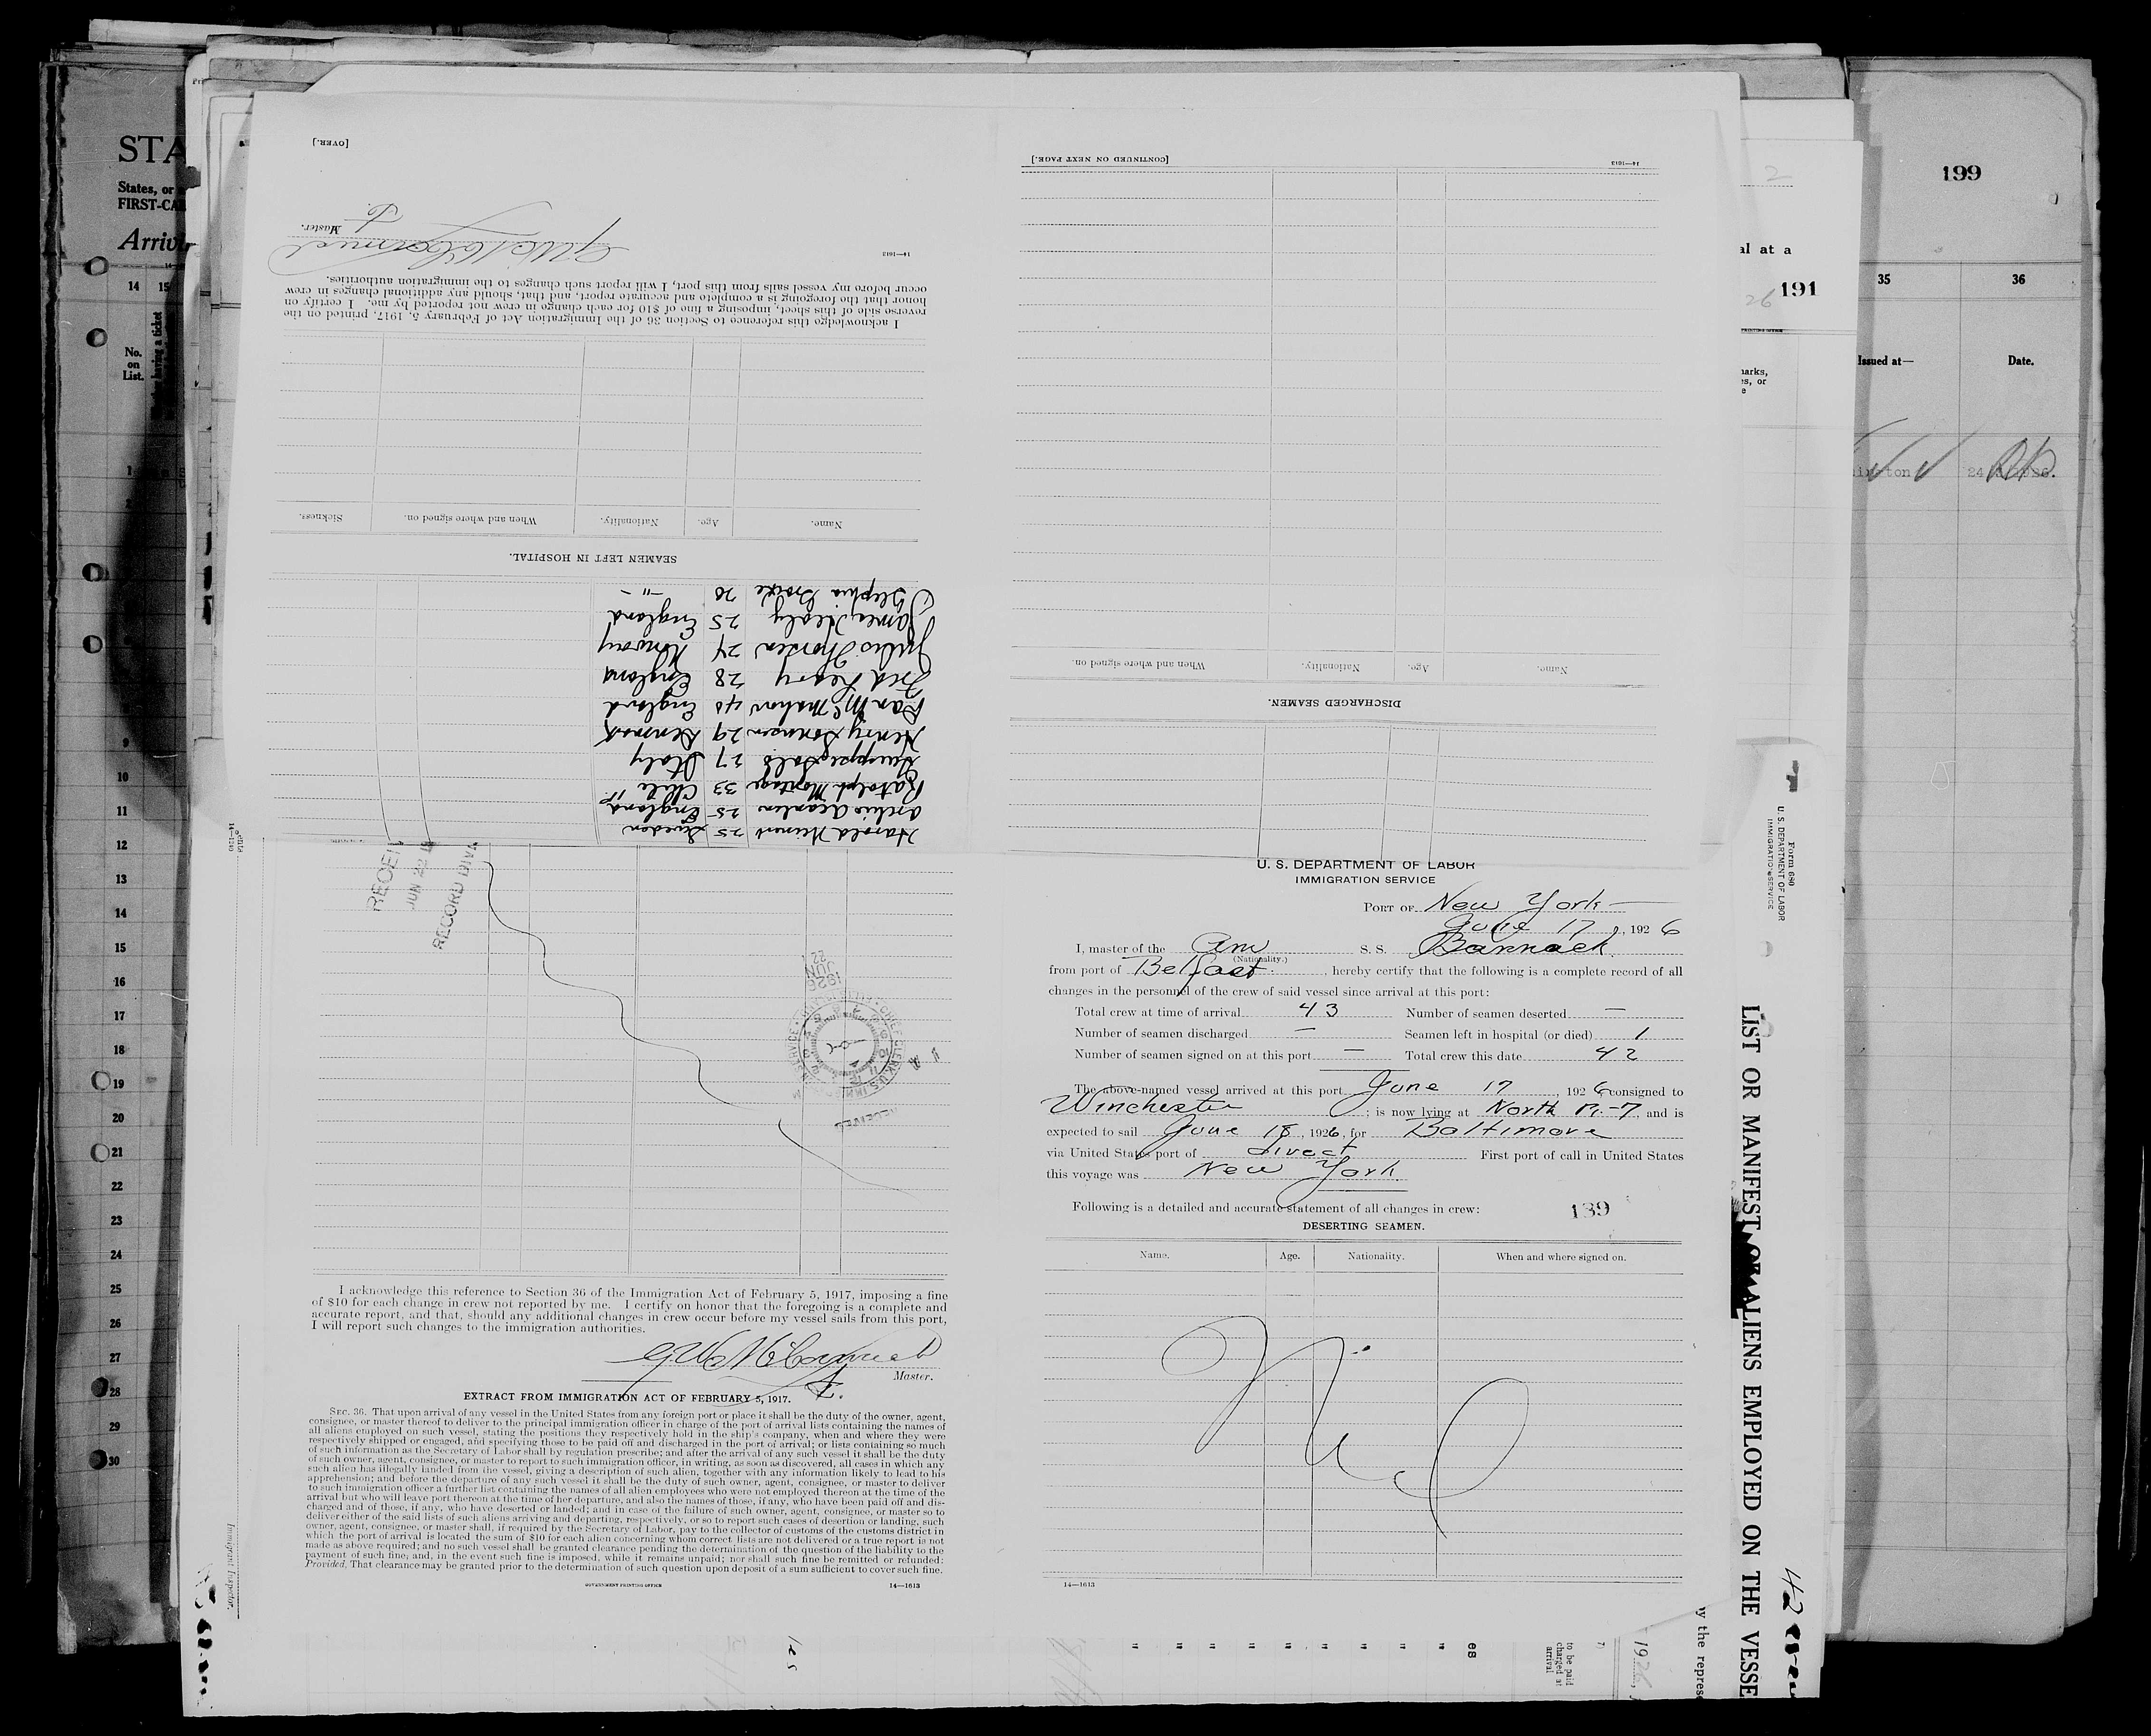 STA
States, or
FIRST-CA
Arrivi
14 15
No.
on
List.
having a ticket
1
9
10
11
12
13
14
15
16
17
18
19
20
21
22
23
24
25
26
27
28
29
30
199
35 36
Issued at— Date.
al at a
191
26
2
[OVER.]
Master.
14—1613
I acknowledge this reference to Section 36 of the Immigration Act of February 5, 1917, printed on the
reverse side of this sheet, imposing a fine of $10 for each change in crew not reported by me. I certify on
honor that the foregoing is a complete and accurate report, and that, should any additional changes in crew
occur before my vessel sails from this port, I will report such changes to the immigration authorities.
Name. Age. Nationality. When and where signed on. Sickness.
SEAMEN LEFT IN HOSPITAL.
Harold 25 Sweden
Archie 25 England
33 Chile
27 Italy
Henry Sorensen 29 Denmark
Dan McMahon 40 England
Fred Leary 28 England
Julius Thorsen 24 Norway
James Healy 25 England
20 — " —
[CONTINUED ON NEXT PAGE.]
14—1613
Name. Age. Nationality. When and where signed on.
DISCHARGED SEAMEN.
RECEI
JUN 22 19
RECORD DIVI
1926
JUN
22
RECEIVED
I acknowledge this reference to Section 36 of the Immigration Act of February 5, 1917, imposing a fine
of $10 for each change in crew not reported by me. I certify on honor that the foregoing is a complete and
accurate report, and that, should any additional changes in crew occur before my vessel sails from this port,
I will report such changes to the immigration authorities.
Master.
EXTRACT FROM IMMIGRATION ACT OF FEBRUARY 5, 1917.
SEC. 36. That upon arrival of any vessel in the United States from any foreign port or place it shall be the duty of the owner, agent,
consignee, or master thereof to deliver to the principal immigration officer in charge of the port of arrival lists containing the names of
all aliens employed on such vessel, stating the positions they respectively hold in the ship's company, when and where they were
respectively shipped or engaged, and specifying those to be paid off and discharged in the port of arrival; or lists containing so much
of such information as the Secretary of Labor shall by regulation prescribe; and after the arrival of any such vessel it shall be the duty
of such owner, agent, consignee, or master to report to such immigration officer, in writing, as soon as discovered, all cases in which any
such alien has illegally landed from the vessel, giving a description of such alien, together with any information likely to lead to his
apprehension; and before the departure of any such vessel it shall be the duty of such owner, agent, consignee, or master to deliver
to such immigration officer a further list containing the names of all alien employees who were not employed thereon at the time of the
arrival but who will leave port thereon at the time of her departure, and also the names of those, if any, who have been paid off and dis-
charged and of those, if any, who have deserted or landed; and in case of the failure of such owner, agent, consignee, or master so to
deliver either of the said lists of such aliens arriving and departing, respectively, or so to report such cases of desertion or landing, such
owner, agent, consignee, or master shall, if required by the Secretary of Labor, pay to the collector of customs of the customs district in
which the port of arrival is located the sum of $10 for each alien concerning whom correct lists are not delivered or a true report is not
made as above required; and no such vessel shall be granted clearance pending the determination of the question of the liability to the
payment of such fine; and, in the event such fine is imposed, while it remains unpaid; nor shall such fine be remitted or refunded:
Provided, That clearance may be granted prior to the determination of such question upon deposit of a sum sufficient to cover such fine.
GOVERNMENT PRINTING OFFICE 14—1613
U. S. DEPARTMENT OF LABOR
IMMIGRATION SERVICE
PORT OF New York
June 17, 1926
I, master of the Am S. S. Bannack
(Nationality.)
from port of Belfast, hereby certify that the following is a complete record of all
changes in the personnel of the crew of said vessel since arrival at this port:
Total crew at time of arrival 43 Number of seamen deserted —
Number of seamen discharged — Seamen left in hospital (or died) 1
Number of seamen signed on at this port — Total crew this date 42
The above-named vessel arrived at this port June 17, 1926 consigned to
Winchester; is now lying at North R.-7, and is
expected to sail June 18, 1926, for Baltimore
via United States port of direct First port of call in United States
this voyage was New York.
Following is a detailed and accurate statement of all changes in crew:
139
DESERTING SEAMEN.
Name. Age. Nationality. When and where signed on.
Nil
14—1613
Form 680
U. S. DEPARTMENT OF LABOR
IMMIGRATION SERVICE
LIST OR MANIFEST OF ALIENS EMPLOYED ON THE VESSE
Immigrant Inspector.
to be paid
charged at
arrival
1926,
by the represe